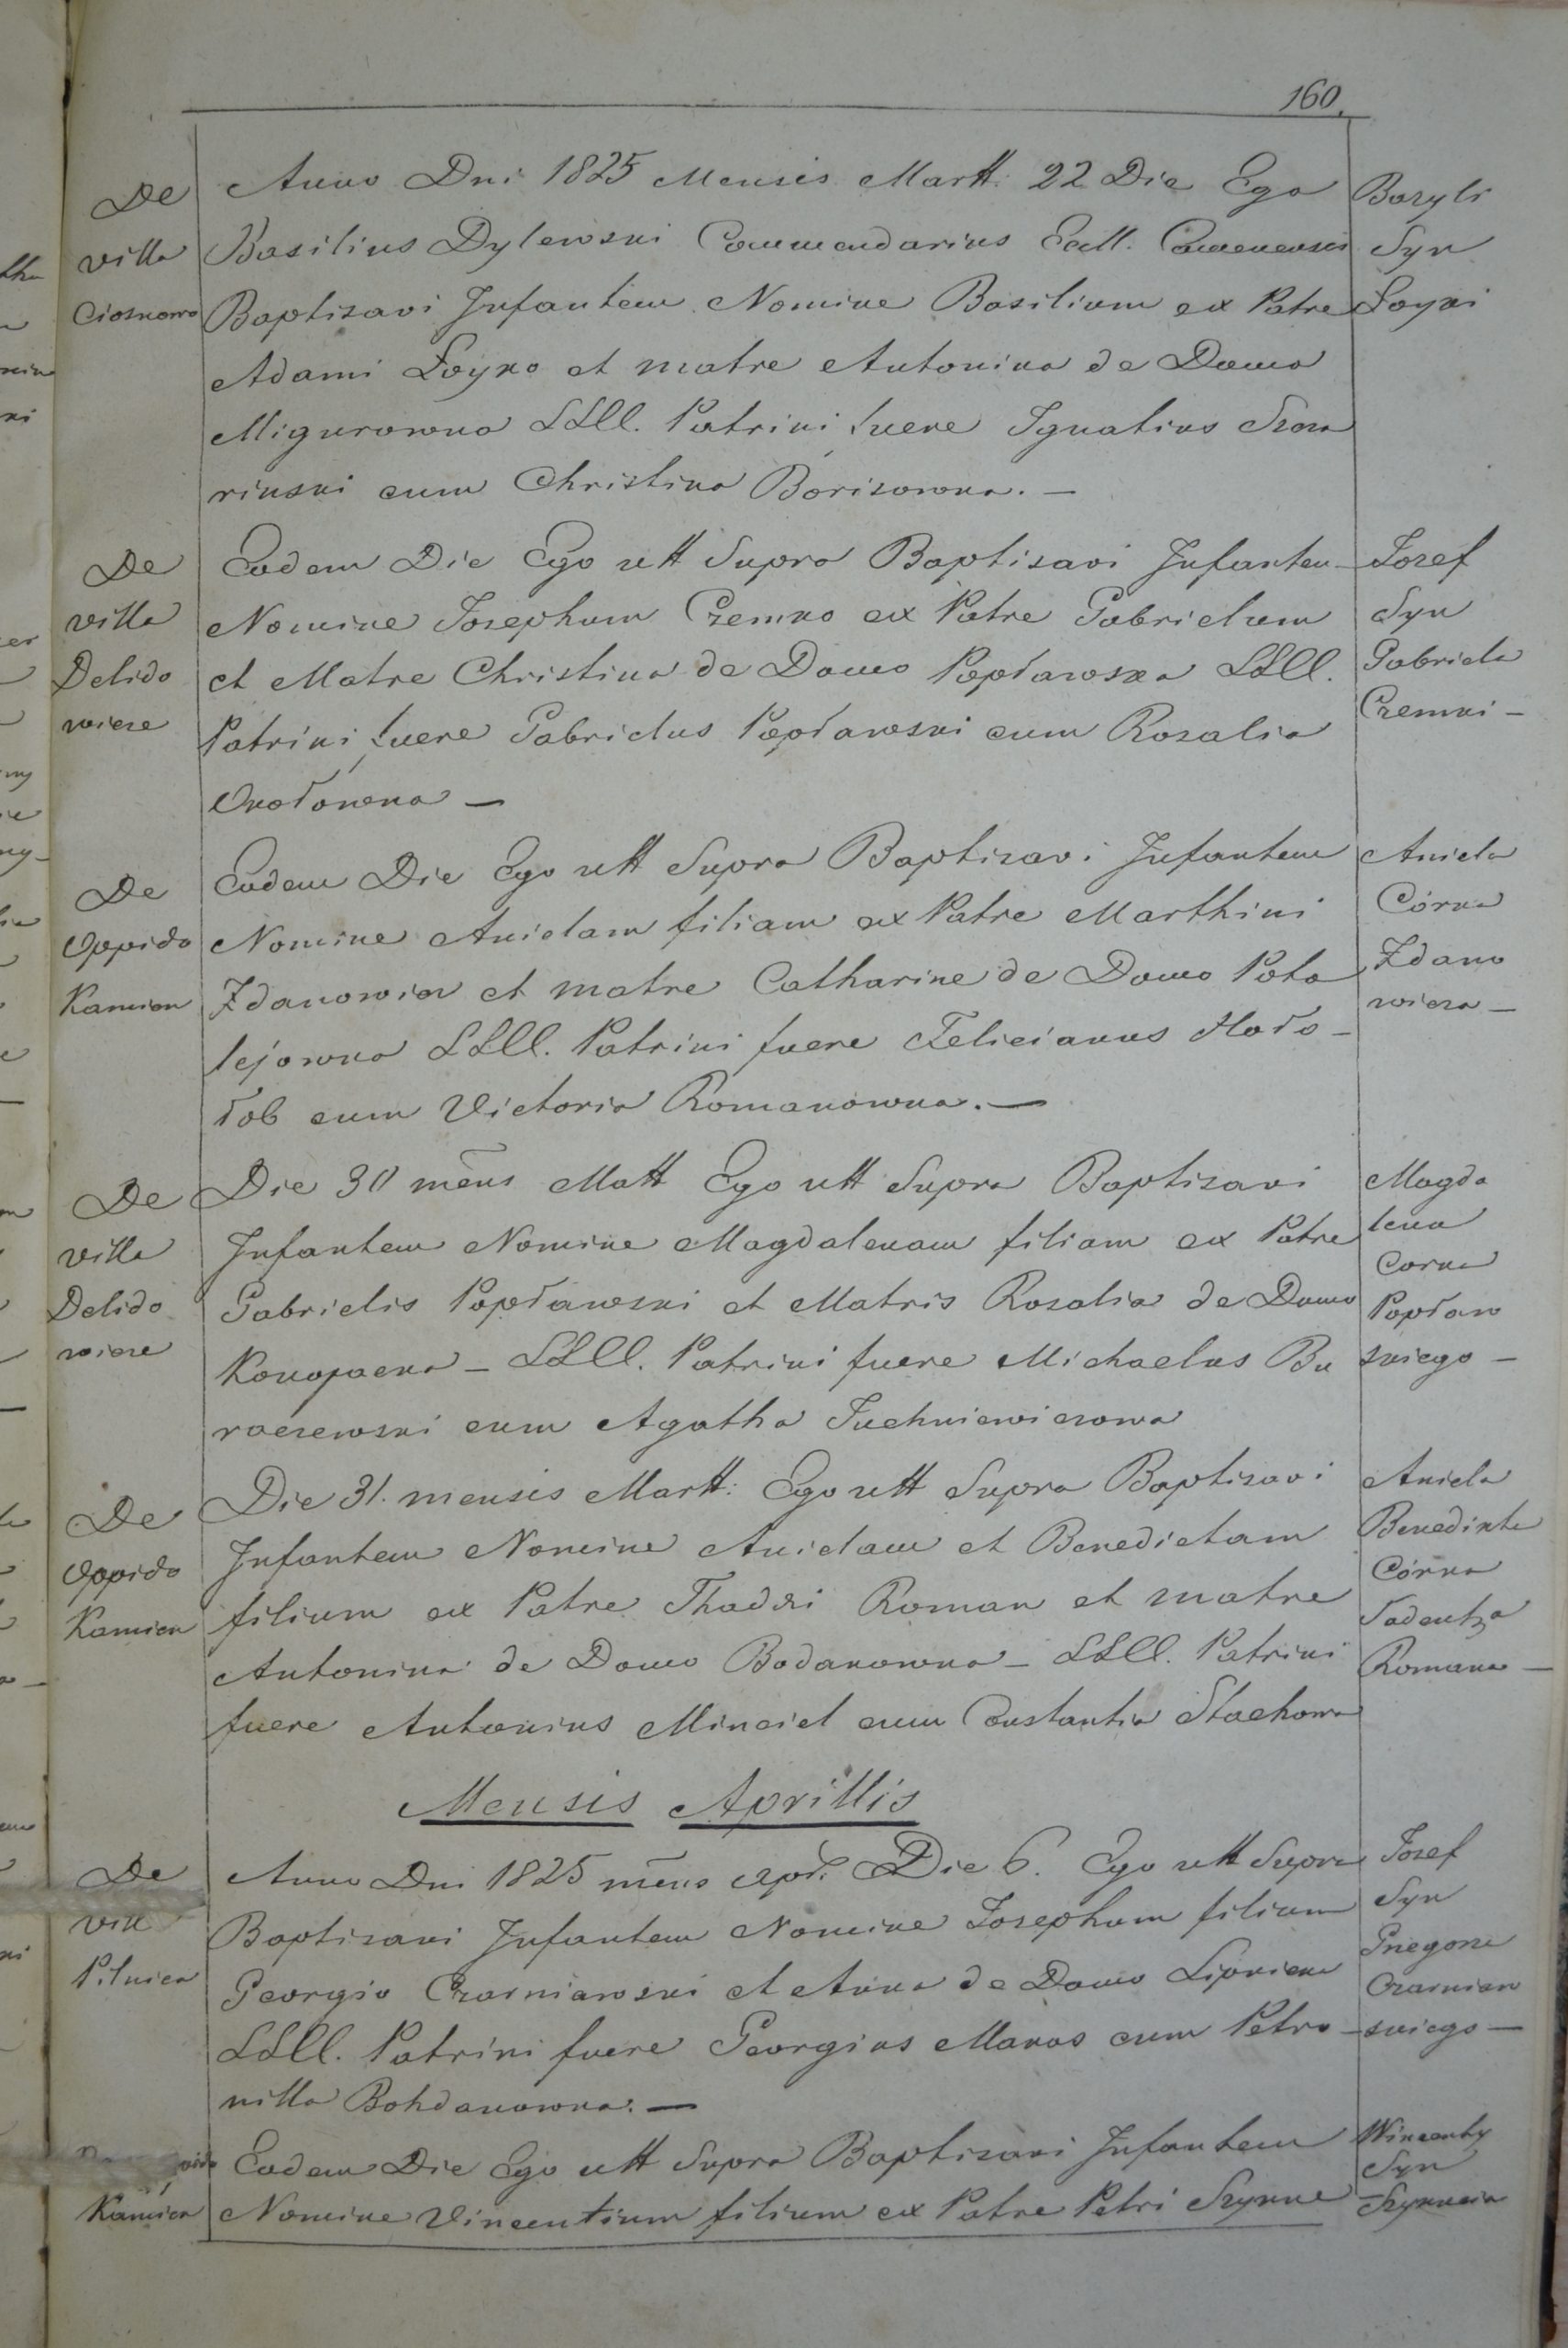 160.
De
villa
Ciosnowo
Anno Dni 1825 Mensis Martt: 22 Die Ego
Basilius Dylewski Commendarius Eccll. Camenensis
Baptisavi Infantem Nomine Basilium ex Patre
Adami Łoyko et matre Antonina de Domo
Migurowna LLCC. Patrini fuere Ignatius Szna
rinski cum Christina Borisowna. —
Bazyli
Syn
Łoyki
De
villa
Delido
wicze
Eadem Die Ego utt Supra Baptisavi Infantem
Nomine Josephum Czemko ex Patre Gabrielum
et Matre Christina de Domo Popławska LLCC.
Patrini fuere Gabrielus Popławski cum Rozalia
Okołowna —
Jozef
Syn
Gabriela
Czemki —
De
Oppido
Kamien
Eadem Die Ego utt Supra Baptisavi Infantem
Nomine Anielam filiam ex Patre Marthini
Zdanowicz et matre Catharine de Domo Pota
lejowna LLCC. Patrini fuere Felicianus Hoło-
łob cum Victoria Romanowna. —
Aniela
Córka
Zdano
wicza —
De
villa
Delido
wicze
Die 30 mens Matt Ego utt Supra Baptisavi
Infantem Nomine Magdalenam filiam ex Patre
Gabrielis Popławski et Matris Rosalia de Domo
Konopacka — LLCC. Patrini fuere Michaelus Bu
raczewski cum Agatha Juchniewiczowa
Magda
lena
Corka
Popław
skiego —
De
Oppido
Kamien
Die 31. mensis Martt: Ego utt Supra Baptisavi
Infantem Nomine Anielam et Benedictam
filium ex Patre Thadei Roman et matre
Antonina de Domo Bodanowna — LLCC. Patrini
fuere Antonius Minciel cum Constantia Stachowa
Aniela
Benedikta
Córka
Tadeusza
Romana —
Mensis Aprillis
De
vill
Pilnica
Anno Dni 1825 mens Apr. Die 6. Ego utt Supra
Baptisavi Infantem Nomine Josephum filium
Georgio Czarniawski et Anna de Domo Lipnicka
LLCC. Patrini fuere Georgius Makas cum Petro-
nilla Bohdanowna. —
Jozef
Syn
Gregorze
Czarniaw
skiego —
Kamien
Eadem Die Ego utt Supra Baptisavi Infantem
Nomine Vincentium filium ex Patre Petri Szynke
Wincenty
Syn